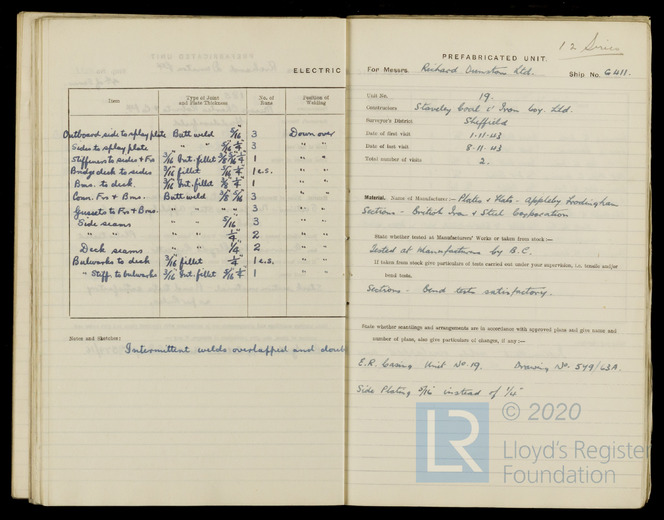 ELECTRIC
Item
Type of Joint
and Plate Thickness
No. of
Runs
Position of
Welding
Outboard side to splay plate Butt weld 5/16 3 Down over
Sides to splay plate " " 5/16 1/4 3 " "
Stiffeners to sides + Frs 3/16 Int. fillet 1 " "
Bridge deck to sides 3/16 fillet 1 e.s. " "
Bms. to deck. 3/16 Int. fillet 1 " "
Conn. Frs + Bms. Butt weld 3 " "
Gussets to Frs + Bms. " " " " 3 " "
Side seams " " 5/16 3 " "
" " " " 1/4 2 " "
Deck seams " " 1/4 2 " "
Bulworks to deck 3/16 fillet 1/4 1 e.s. " "
" Stiff. to bulworks 3/16 Int. fillet 1 " "
Notes and Sketches:
Intermittent welds overlapped and doub
12 Series
PREFABRICATED UNIT.
For Messrs. Richard Dunston Ltd. Ship No. G411.
Unit No. 19.
Constructors Staveley Coal & Iron Coy. Ltd.
Surveyor's District Sheffield
Date of first visit 1-11-43
Date of last visit 8-11-43
Total number of visits 2.
Material. Name of Manufacturer:- Plates & Flats - Appleby Frodingham
Sections - British Iron & Steel Corporation
State whether tested at Manufacturers' Works or taken from stock:-
Tested at Manufacturers by B.C.
If taken from stock give particulars of tests carried out under your supervision, i.e. tensile and/or
bend tests.
Sections - Bend tests satisfactory.
State whether scantlings and arrangements are in accordance with approved plans and give name and
number of plans, also give particulars of changes, if any:-
E.R. Casing Unit No 19. Drawing No. 549/63A.
Side Plating 5/16" instead of 1/4"
LR
© 2020
Lloyd's Register
Foundation